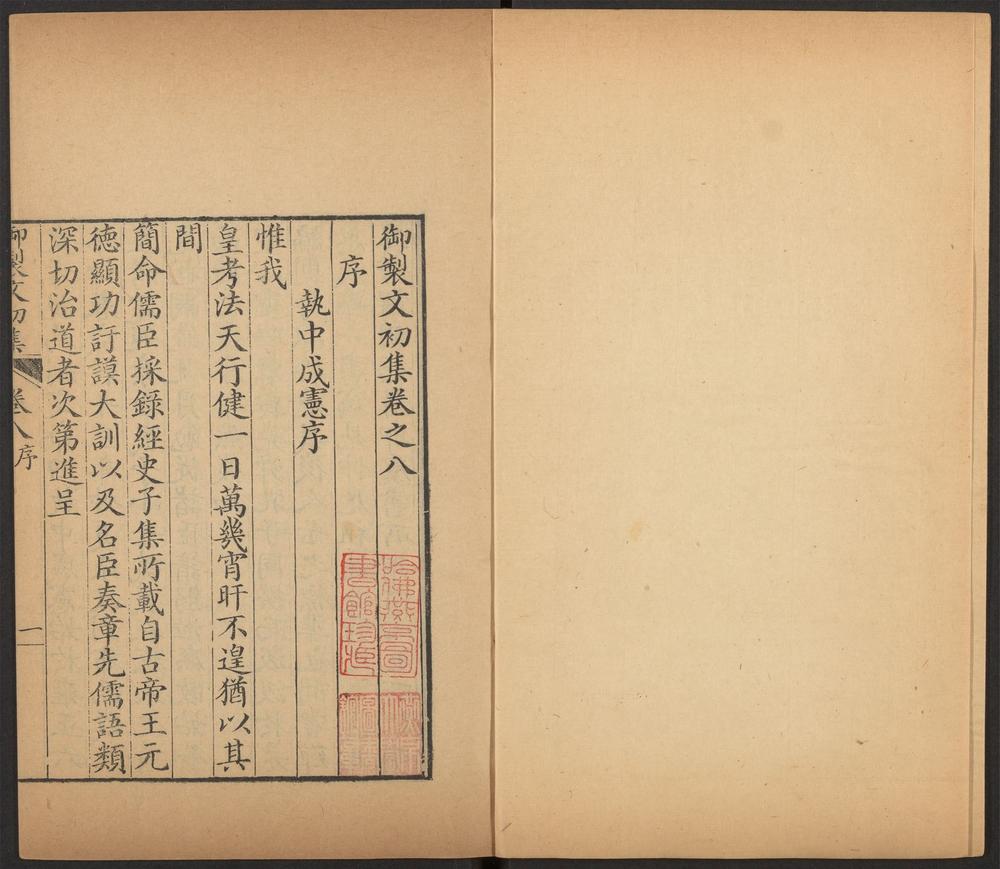 御製文初集卷之八
序
執中成憲序
惟我
皇考法天行健一日萬幾宵旰不遑猶以其
間
簡命儒臣採錄經史子集所載自古帝王元
德顯功訏謨大訓以及名臣奏章先儒語類
深切治道者次第進呈
御製文初集
卷八序
一
哈佛燕京圖
書館珍藏